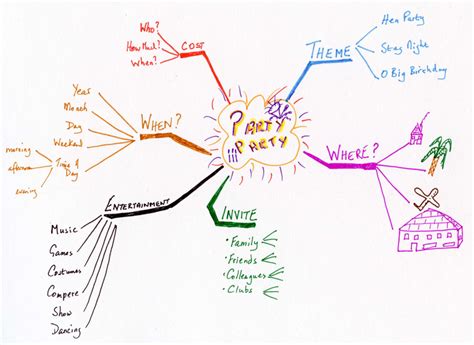 Who?
How Much?
When?
COST
THEME
Hen Party
Stag Night
O Big Birthday
PARTY
PARTY
WHEN?
Years
Month
Day
Weekend
Time of Day
morning
afternoon
evening
WHERE?
ENTERTAINMENT
Music
Games
Costumes
Compere
Show
Dancing
INVITE
• Family
• Friends
• Colleagues
• Clubs